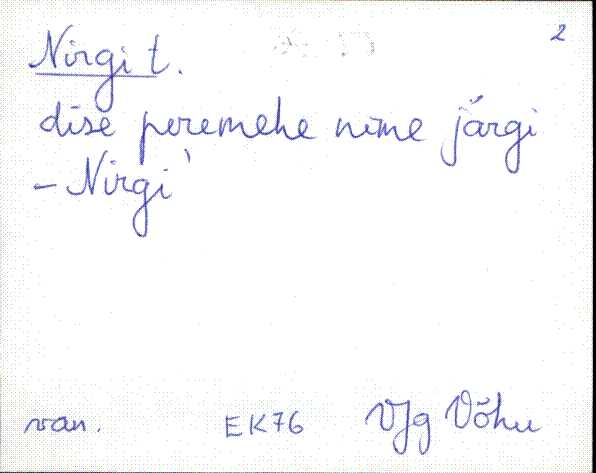 2
Nirgi t.
dise peremehe nime järgi
- Nirgi'
van. EK76 VJg Võhu